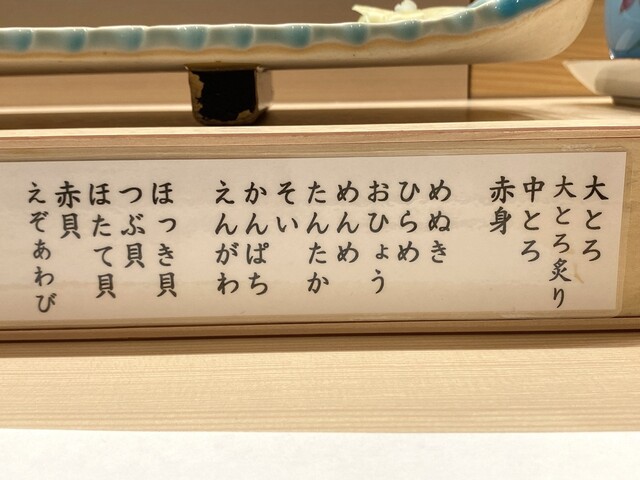 大とろ
大とろ炙り
中とろ
赤身
めぬき
ひらめ
おひょう
めんめ
たんたか
そい
かんぱち
えんがわ
ほっき貝
つぶ貝
ほたて貝
赤貝
えぞあわび